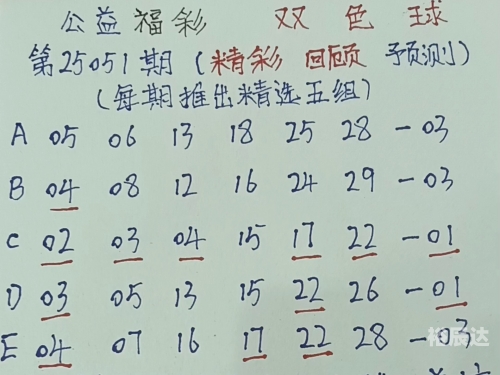 公益福彩 双色球
第25051期(精彩回顾预测)
(每期推出精选五组)
A 05 06 13 18 25 28 - 03
B 04 08 12 16 24 29 - 03
C 02 03 04 15 17 22 - 01
D 03 05 13 15 22 26 - 01
E 04 07 16 17 22 28 - 03